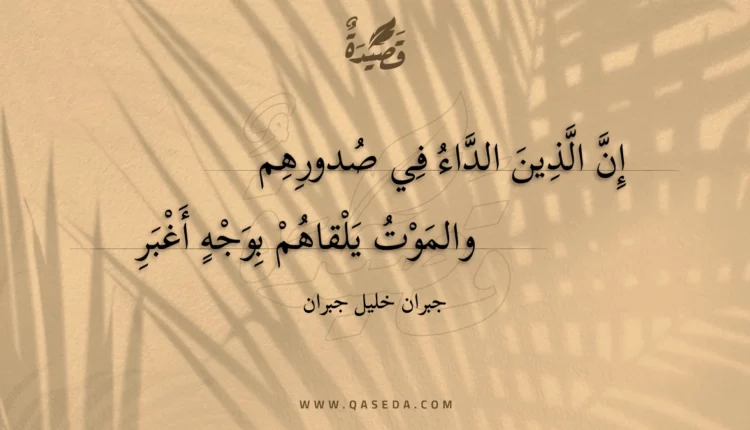 قَصِيْدَةٌ
إِنَّ الَّذِينَ الدَّاءُ فِي صُدورِهِم
والمَوْتُ يَلْقاهُمْ بِوَجْهٍ أَغْبَرِ
جبران خليل جبران
WWW.QASEDA.COM